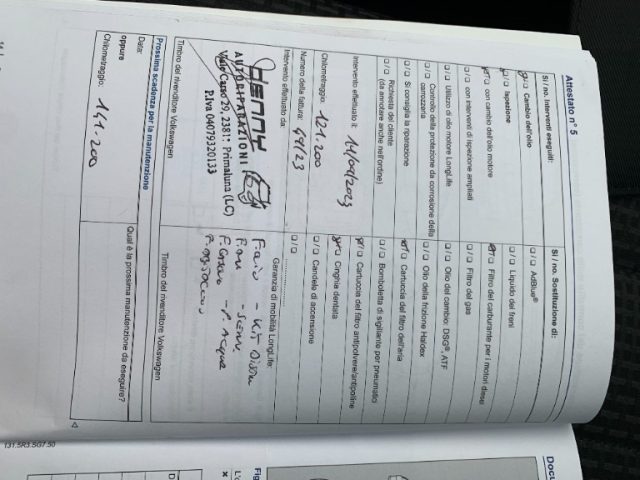 Attestato n° 5
Si / no. Interventi eseguiti:
Cambio dell'olio
Ispezione
con cambio dell'olio motore
con interventi di ispezione ampliati
Utilizzo di olio motore LongLife
Controllo della protezione da corrosione della carrozzeria
Si consiglia la riparazione
Richiesta del cliente
(da annotare anche nell'ordine)
Intervento effettuato il:
Chilometraggio: 121.200
Numero della fattura: 49/23
Intervento effettuato da:
DENNY
AUTORIPARAZIONI
23811 - Primaluna (LC)
P.Iva 04079320133
Timbro del rivenditore Volkswagen
Si / no. Sostituzione di:
AdBlue®
Liquido dei freni
Filtro del carburante per i motori diesel
Filtro del gas
Olio del cambio: DSG®, ATF
Olio della frizione Haldex
Cartuccia del filtro dell'aria
Bomboletta di sigillante per pneumatici
Cartuccia del filtro antipolvere/antipolline
Cinghia dentata
Candele di accensione
Garanzia di mobilità LongLife:
Timbro del rivenditore Volkswagen
Prossima scadenza per la manutenzione
Data:
oppure
Chilometraggio: 141.200
Qual è la prossima manutenzione da eseguire?
131.5R3.SG7.50
Docu